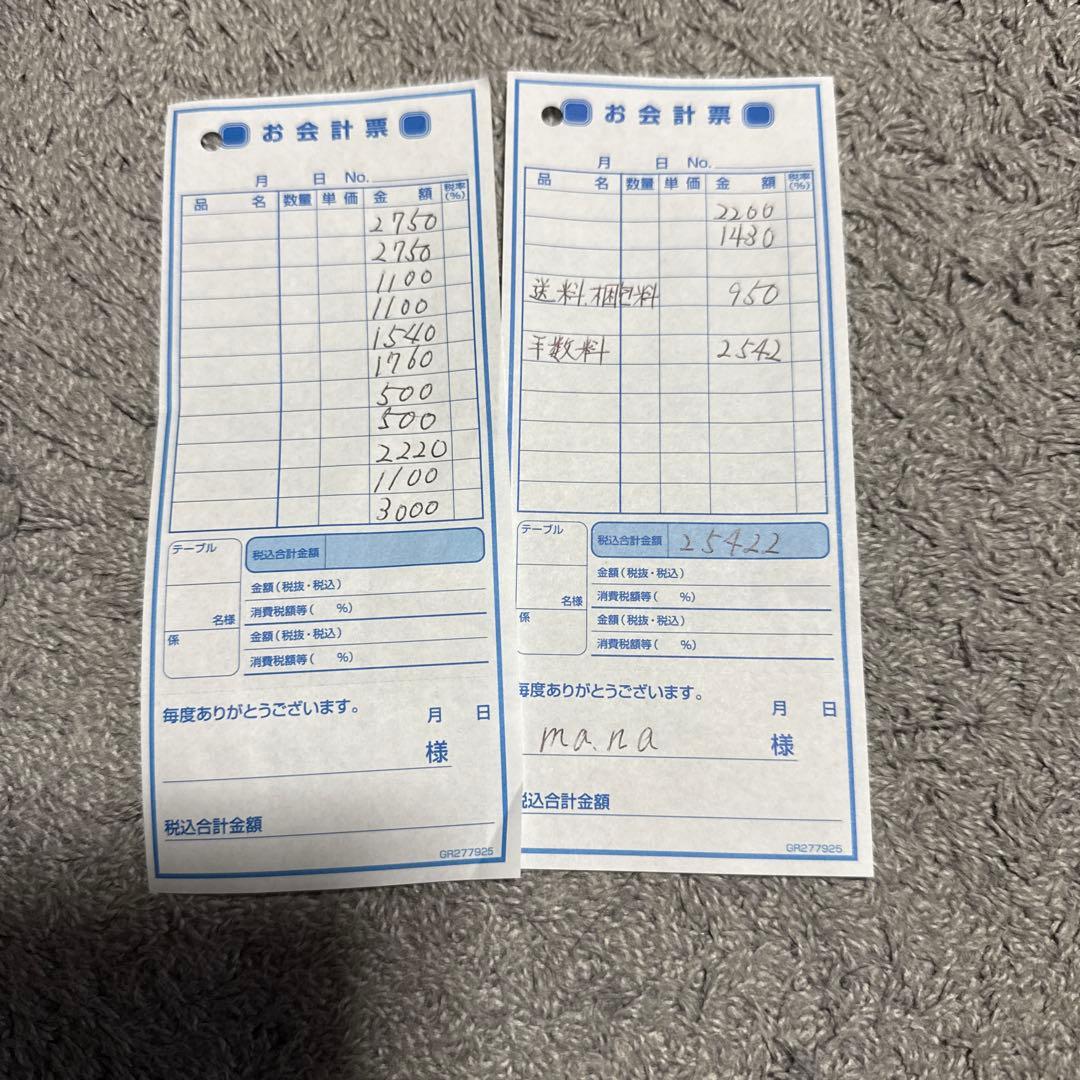 お会計票
月 日 No.
品 名 数量 単価 金 額 税率(%)
2750
2750
1100
1100
1540
1760
500
500
2220
1100
3000
テーブル
名様
係
税込合計金額
金額(税抜・税込)
消費税額等( %)
金額(税抜・税込)
消費税額等( %)
毎度ありがとうございます。
月 日
様
税込合計金額
GR277925
お会計票
月 日 No.
品 名 数量 単価 金 額 税率(%)
2200
1430
送料.梱包料 950
手数料 2542
テーブル
名様
係
税込合計金額 25422
金額(税抜・税込)
消費税額等( %)
金額(税抜・税込)
消費税額等( %)
毎度ありがとうございます。
月 日
ma.na 様
税込合計金額
GR277925